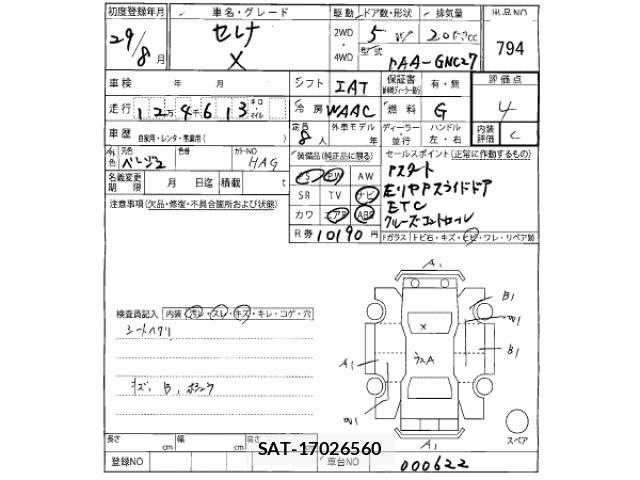 初度登録年月 車名・グレード 駆動 ドア数・形状 排気量 出品NO
29/8月 セレナ X 2WD・4WD 5 cc 794
型式 DAA-GNC27
車検 年 月 シフト IAT 保証書 有・無 評価点 4
走行 12万4千613 キロ マイル 冷房 WAAC 燃料 G
車歴 自家用・レンタ・営業用( ) 定員 8人 外車モデル 年 ディーラー・並行 ハンドル 左・右 内装評価 C
外色 元色 色番 カラーNO HAG
装備品(純正品に限る) セールスポイント(正常に作動するもの)
名義変更期限 月 日迄 積載 t
PS PW AW
SR TV ナビ
カワ エアB ABS
Pスタート
ETC
クルーズコントロール
R券 10190円
Fガラス トビ石・キズ・ヒビ・ワレ・リペア跡
注意事項(欠品・修復・不具合箇所および状態)
検査員記入 内装 汚レ・スレ・キズ・キレ・コゲ・穴
シートヘタリ
キズ、B、
A1
B1
W1
B1
A1
X
W1
A1
スペア
長さ cm 幅 cm 高さ
SAT-17026560
登録NO 車台NO 000622